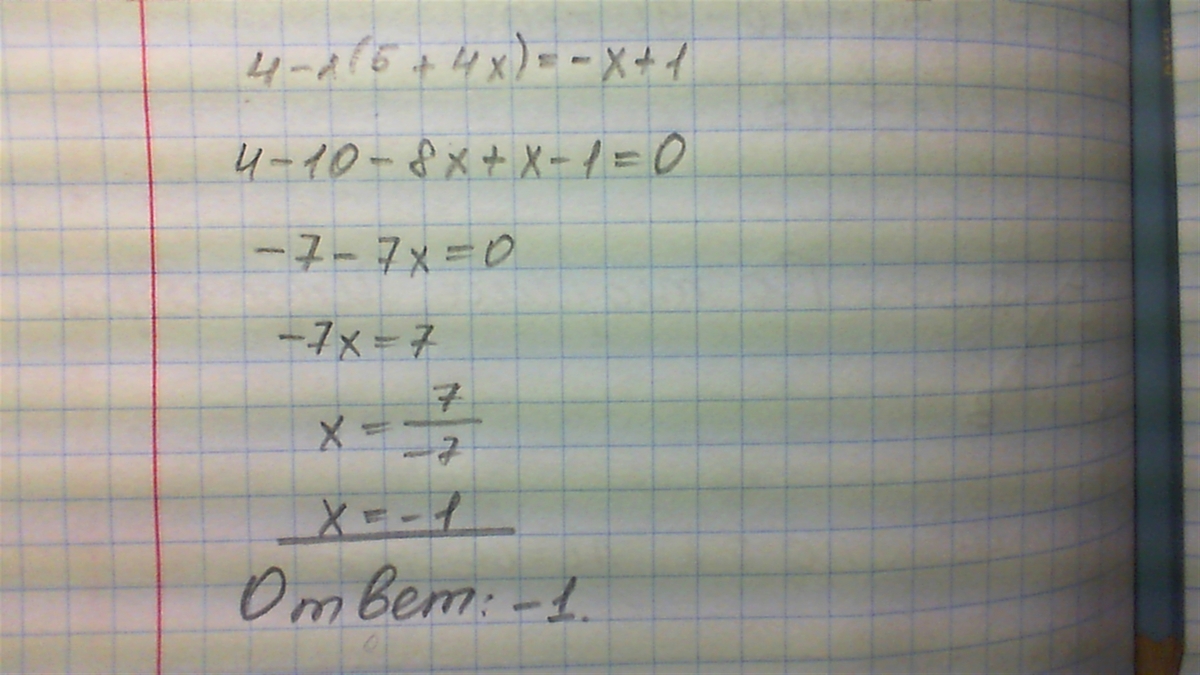 4-2(5+4x)=-x+1
4-10-8x+x-1=0
-7-7x=0
-7x=7
x=7/-7
x=-1
Ответ: -1.